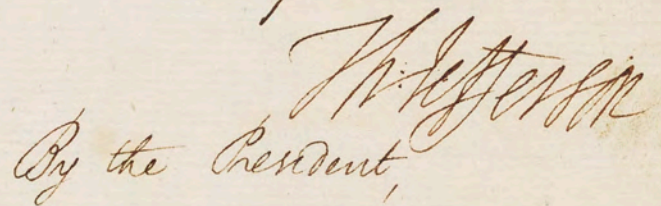 Th: Jefferson
By the President,